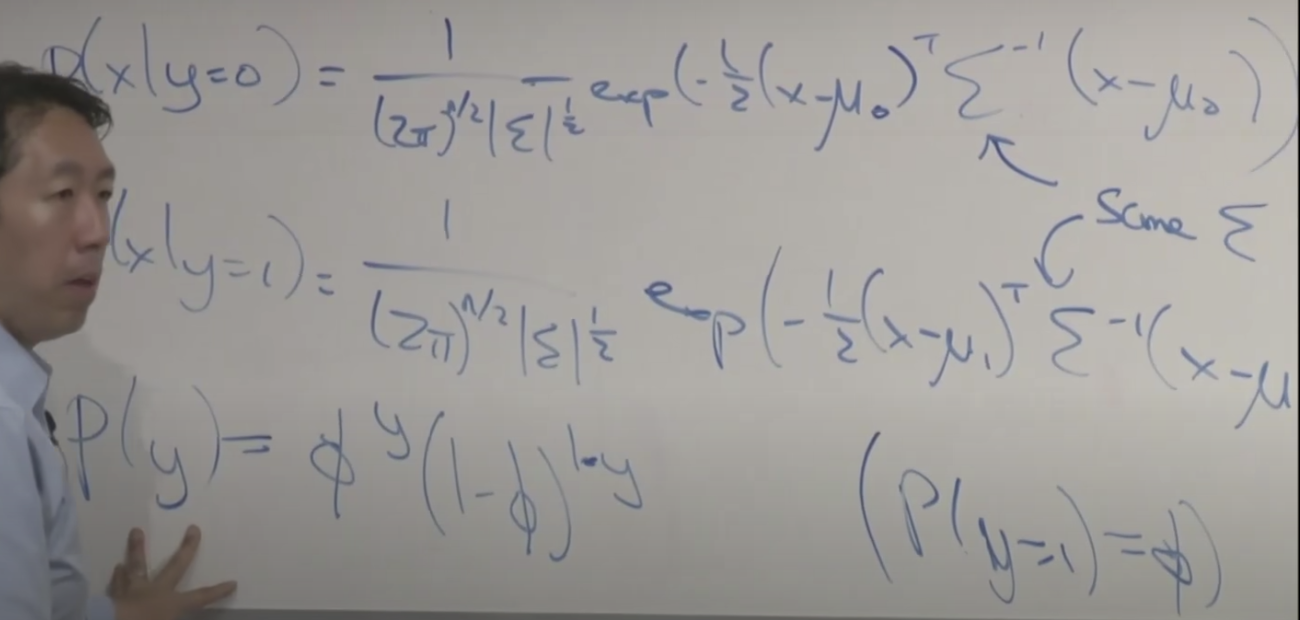 P(x|y=0) = 1/((2π)^(n/2) |Σ|^(1/2)) exp(-1/2 (x-μ₀)^T Σ^(-1) (x-μ₀))
same Σ
(x|y=1) = 1/((2π)^(n/2) |Σ|^(1/2)) exp(-1/2 (x-μ₁)^T Σ^(-1) (x-μ
P(y) = φ^y (1-φ)^(1-y) (P(y=1) = φ)